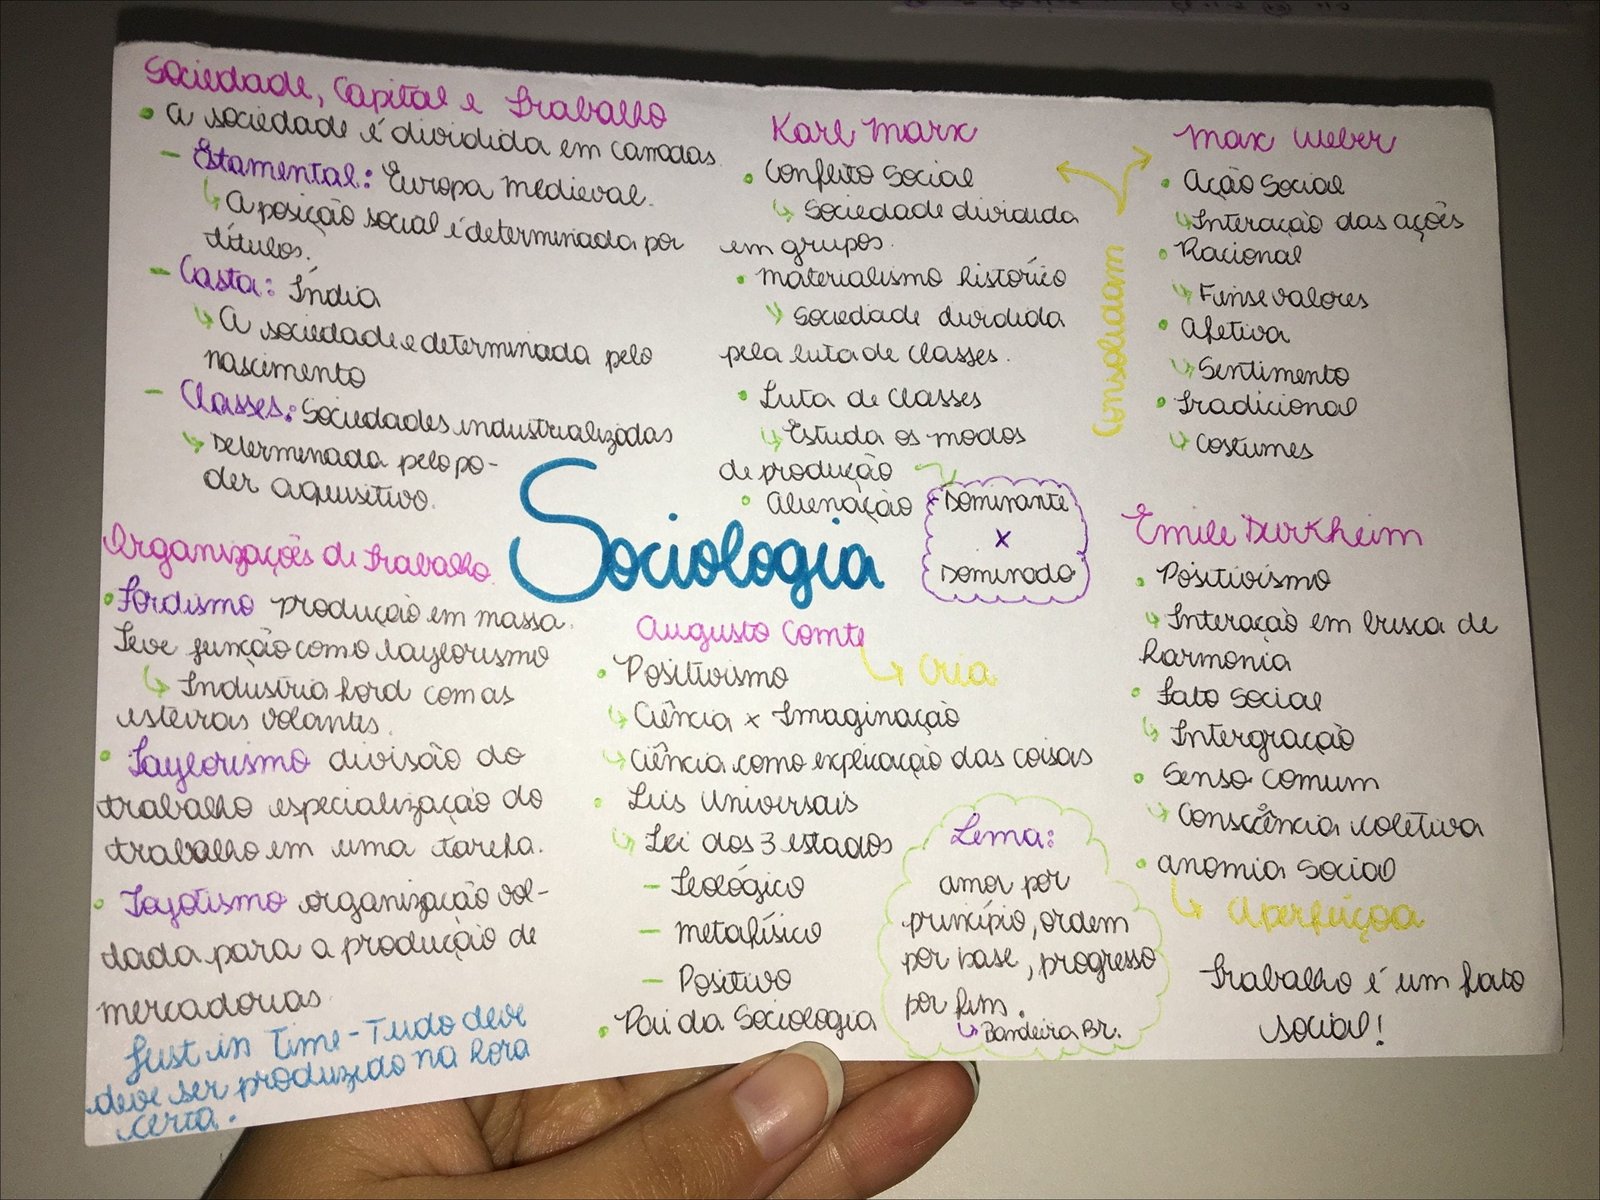 Sociedade, Capital e Trabalho
• A sociedade é dividida em camadas.
- Estamental: Europa medieval.
↳ A posição social é determinada por
títulos.
- Casta: Índia
↳ A sociedade e determinada pelo
nascimento
- Classes: Sociedades industrializadas
↳ Determinada pelo po-
der aquisitivo.
Organizações de Trabalho.
• Fordismo produção em massa.
Teve função como taylorismo
↳ Industria Ford com as
esteiras volantes.
• Taylorismo divisão do
trabalho especialização do
trabalho em uma tarefa.
• Toyotismo organização vol-
dada para a produção de
mercadorias.
Just in Time - Tudo deve
deve ser produzido na hora
certa.
Sociologia
Karl Marx
• Conflito Social
↳ Sociedade dividida
em grupos.
• Materialismo histórico
↳ Sociedade dividida
pela luta de classes.
• Luta de classes
↳ Estuda os modos
de produção
• Alienação
Dominante
x
Dominado
Consolidam
Max Weber
• Ação Social
↳ Interação das ações
• Racional
↳ Fins e valores
• Afetiva
↳ Sentimento
• Tradicional
↳ Costumes
Augusto Comte
↳ Cria
• Positivismo
↳ Ciência x Imaginação
↳ Ciência como explicação das coisas
• Leis Universais
↳ Lei dos 3 estados
- Teológico
- Metafísico
- Positivo
• Pai da Sociologia
Lema:
amor por
princípio, ordem
por base, progresso
por fim.
↳ Bandeira Br.
Emile Durkheim
• Positivismo
↳ Interação em busca de
harmonia
• Fato Social
↳ Intergração
• Senso comum
↳ Consciência coletiva
• Anomia Social
↳ Aperfeiçoa
Trabalho é um fato
social!